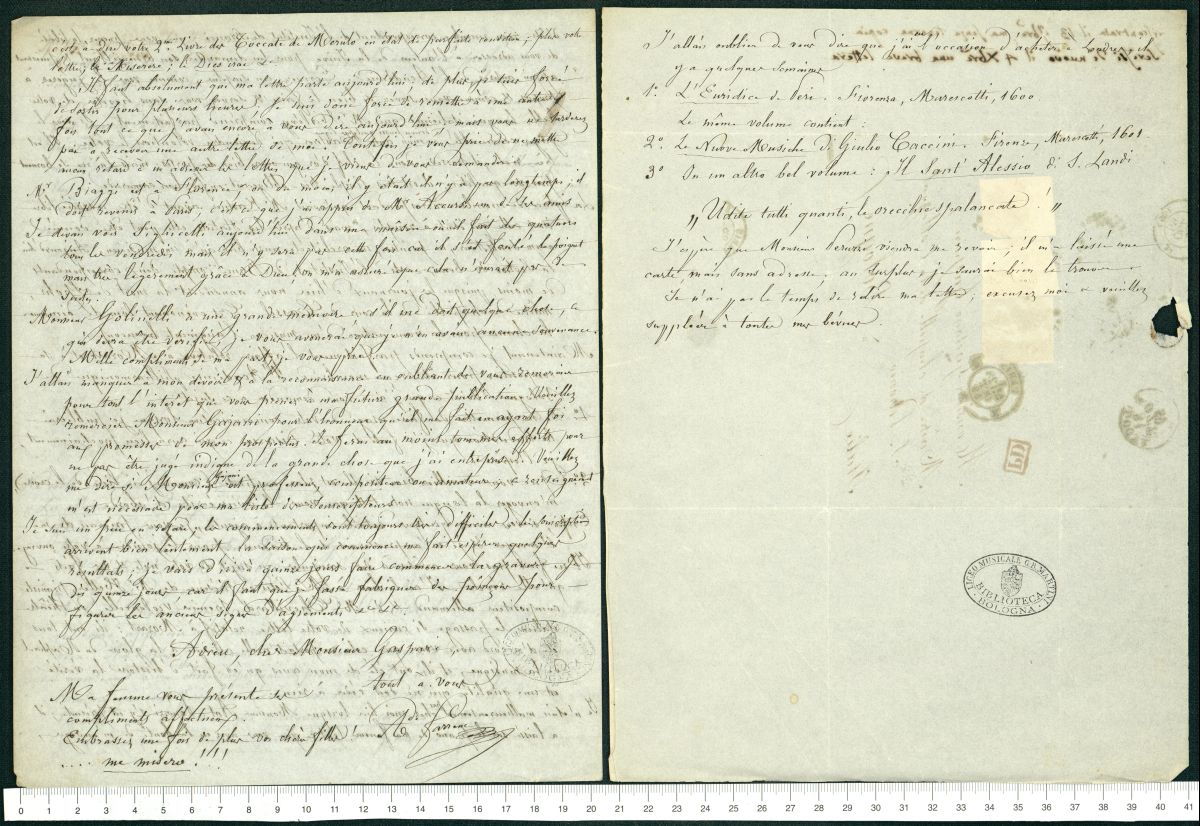 c'est à dire votre 2me Livre des Toccate de Merulo en état de parfaite ; plus votre
lettre, le Miserere, le Dies irae
Il faut absolument que ma lettre parte aujourd'hui, de plus je suis forcé
de sortir pour plusieurs heures. Je suis donc forcé de remettre à une autre
fois tout ce que j'avais encore à vous dire aujourd'hui mais vous ne tarderez
pas à recevoir une autre lettre de moi. Toutefois je vous prie de ne mettre
aucun retard à m'adresser les lettres que je viens de vous demander.
Mr Biaggi est à Florence ou du moins il y était il n'y a pas longtemps ; il
doit revenir à Paris, c'est ce que j'ai appris de Mr Accursi un de ses amis
Je devais voir aujourd'hui dans une maison où il fait des quatuors
tous les vendredis mais il n'y sera pas cette fois car il s'est foulé le poignet
mais très légèrement grâce à Dieu, on m'a assuré que cela n'aurait pas de
suites.
Monsieur Golinelli a une grande mémoire s'il me doit quelque chose, ce
qui devra être vérifié, je vous avouerai que je n'en avais aucune souvenance.
Mille compliments de ma part, je vous prie.
J'allais manquer à mon devoir & à la reconnaissance en oubliant de vous remercier
pour tout l'intérêt que vous prenez à ma future grande publication. Veuillez
remercier Monsieur Gajani pour l'honneur qu'il me fait en ayant foi
aux promesses de mon prospectus. Je ferai au moins tous mes efforts pour
ne pas être jugé indigne de la grande chose que j'ai entreprise. Veuillez
me dire si Monsieur Gajani est professeur, compositeur ou amateur, ce renseignement
m'est nécessaire pour ma liste de souscripteurs.
Je suis un peu en retard, les commencements sont toujours très difficiles & les souscriptions
arrivent bien lentement, la saison qui commence me fait espérer quelques
résultats, je vais d'ici à quinze jours faire commencer la gravure
Dis quinze jours car il faut que je fasse fabriquer des poinçons pour
figurer les anciens signes d'agrément, &c &c.
Adieu, cher Monsieur Gaspari,
tout à vous
Ade Farrenc
Ma femme vous présente ses
compliments affectueux.
Embrassez une fois de plus vos chères filles
.... me misero !!!
J'allais oublier de vous dire que j'ai eu l'occasion d'acheter à Londres, il
y a quelques semaines
1º L'Euridice de Peri - Fiorenza, Marescotti, 1600
Le même volume contient
2º Le Nuove Musiche di Giulio Caccini. Firenze, Marescotti, 1601.
3º In un altro bel volume : Il Sant' Alessio di S. Landi
„ Udite tutti quanti, le orecchie spalancate ! „
J'espère que Monsieur viendra me revoir ; il m'a laissé une
carte mais sans adresse, au surplus, je saurai bien le trouver.
Je n'ai pas le temps de relire ma lettre ; excusez moi & veuillez
suppléer à toutes mes bévues.
PD
LICEO MUSICALE G.B. MARTINI
BIBLIOTECA
BOLOGNA
0 1 2 3 4 5 6 7 8 9 10 11 12 13 14 15 16 17 18 19 20 21 22 23 24 25 26 27 28 29 30 31 32 33 34 35 36 37 38 39 40 41